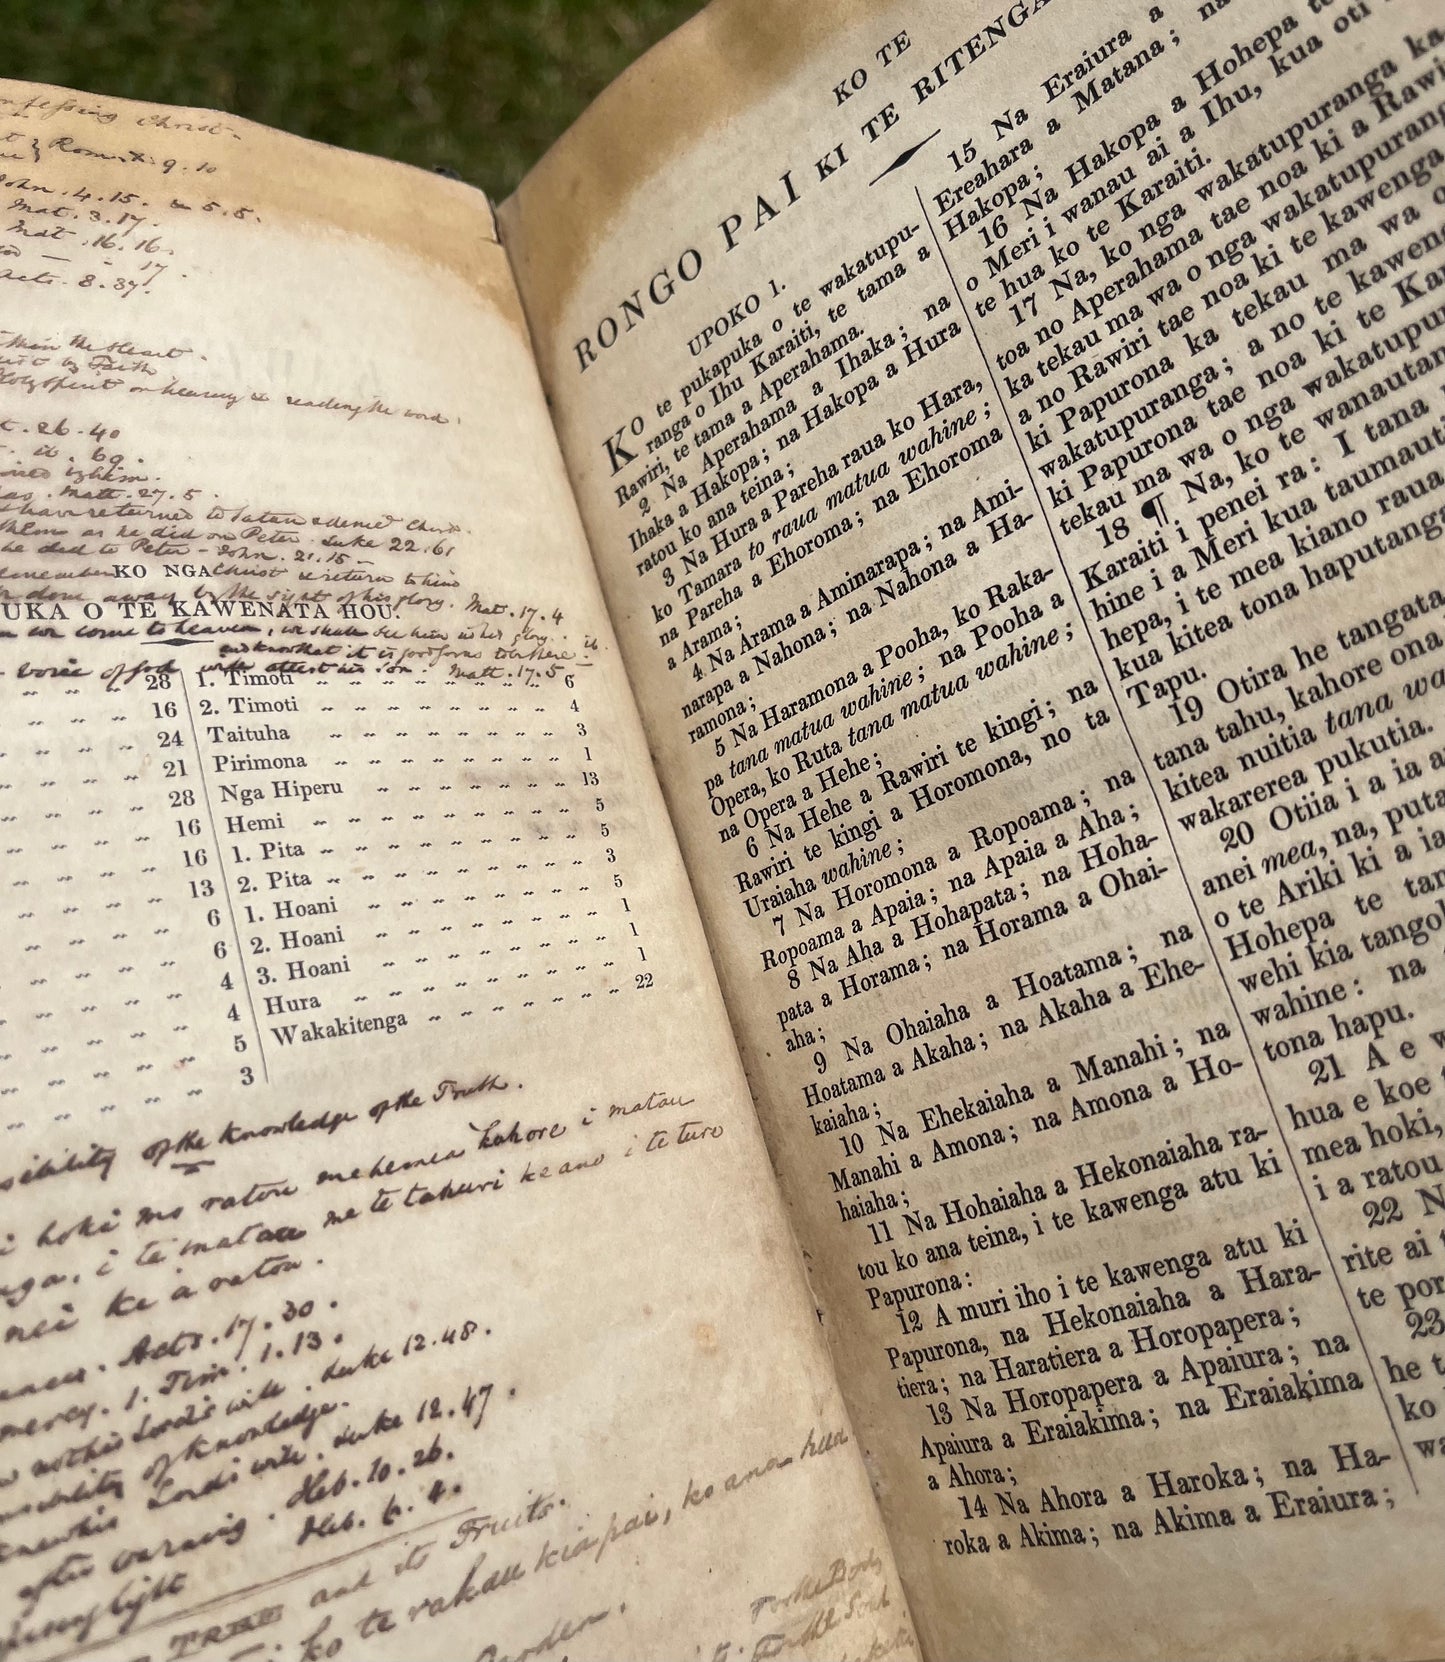 Christ
Rom. x. 9. 10
John. 4. 15. & 5. 5.
Mat. 3. 17.
Mat. 16. 16.
17.
Acts. 8. 37.
the Heart.
by Faith
Holy Spirit on hearing & reading the word.
26. 40
69.
Matt. 27. 5.
have returned to Satan & denied Christ.
them as he did on Peter. Luke 22. 61
he did to Peter - John. 21. 15 -
remember Christ & return to him
KO NGA
done away by the sight of his glory. Mat. 17. 4
UKA O TE KAWENATA HOU.
we come to heaven, we shall see him in his glory.
and know that it is good for us to be here.
voice of God will attest his Son. Matt. 17. 5 -
28
16
24
21
28
16
16
13
6
6
4
4
5
3
1. Timoti „ „ „ „ „ „ „ 6
2. Timoti „ „ „ „ „ „ „ 4
Taituha „ „ „ „ „ „ „ 3
Pirimona „ „ „ „ „ „ 1
Nga Hiperu „ „ „ „ „ 13
Hemi „ „ „ „ „ „ „ 5
1. Pita „ „ „ „ „ „ „ 5
2. Pita „ „ „ „ „ „ „ 3
1. Hoani „ „ „ „ „ „ 5
2. Hoani „ „ „ „ „ „ 1
3. Hoani „ „ „ „ „ „ 1
Hura „ „ „ „ „ „ „ 1
Wakakitenga „ „ „ „ „ 22
of the Knowledge of the Truth.
hoki mo ratou mehemea kahore i matau
i te matau me te tahuri ke ano i te ture
nei ki a ratou.
Acts. 17. 30.
mercy. 1. Tim. 1. 13.
not his Lord's will. Luke 12. 48.
of Knowledge.
Lord's will. Luke 12. 47.
after warning. Heb. 10. 26.
Heb. 6. 4.
light
TREE and its Fruits.
ko te rakau kia pai, ko ana hua
Garden.
For the Body
For the Soul
KO TE
RONGO PAI KI TE RITENGA
UPOKO 1.
KO te pukapuka o te wakatupu-
ranga o Ihu Karaiti, te tama a
Rawiri, te tama a Aperahama.
2 Na Aperahama a Ihaka; na
Ihaka a Hakopa; na Hakopa a Hura
ratou ko ana teina;
3 Na Hura a Pareha raua ko Hara,
ko Tamara to raua matua wahine;
na Pareha a Ehoroma; na Ehoroma
a Arama;
4 Na Arama a Aminarapa; na Ami-
narapa a Nahona; na Nahona a Ha-
ramona;
5 Na Haramona a Pooha, ko Raka-
pa tana matua wahine; na Pooha a
Opera, ko Ruta tana matua wahine;
na Opera a Hehe;
6 Na Hehe a Rawiri te kingi; na
Rawiri te kingi a Horomona, no ta
Uraiaha wahine;
7 Na Horomona a Ropoama; na
Ropoama a Apaia; na Apaia a Aha;
8 Na Aha a Hohapata; na Hoha-
pata a Horama; na Horama a Ohai-
aha;
9 Na Ohaiaha a Hoatama; na
Hoatama a Akaha; na Akaha a Ehe-
kaiaha;
10 Na Ehekaiaha a Manahi; na
Manahi a Amona; na Amona a Ho-
haiaha;
11 Na Hohaiaha a Hekonaiaha ra-
tou ko ana teina, i te kawenga atu ki
Papurona:
12 A muri iho i te kawenga atu ki
Papurona, na Hekonaiaha a Hara-
tiera; na Haratiera a Horopapera;
13 Na Horopapera a Apaiura; na
Apaiura a Eraiakima; na Eraiakima
a Ahora;
14 Na Ahora a Haroka; na Ha-
roka a Akima; na Akima a Eraiura;
15 Na Eraiura a
Ereahara a Matana; na
Hakopa;
16 Na Hakopa a Hohepa te
o Meri i wanau ai a Ihu, kua oti
te hua ko te Karaiti.
17 Na, ko nga wakatupuranga ka
toa no Aperahama tae noa ki a Rawi
ka tekau ma wa o nga wakatupurang
a no Rawiri tae noa ki te kawenga
ki Papurona ka tekau ma wa o
wakatupuranga; a no te kaweng
ki Papurona tae noa ki te Kar
tekau ma wa o nga wakatupur
18 ¶ Na, ko te wanautan
Karaiti i penei ra: I tana
hine i a Meri kua taumauti
hepa, i te mea kiano raua
kua kitea tona haputanga
Tapu.
19 Otira he tangata
tana tahu, kahore ona
kitea nuitia tana wa
wakarerea pukutia.
20 Otiia i a ia a
anei mea, na, puta
o te Ariki ki a ia
Hohepa te tam
wehi kia tangoh
wahine: na
tona hapu.
21 A e w
hua e koe
mea hoki,
i a ratou
22 N
rite ai
te por
23
he t
ko
wa